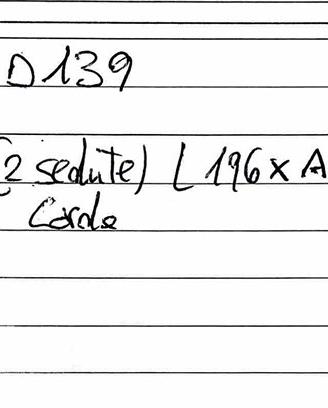 D139
(2 sedute) L 196 x A
Corda